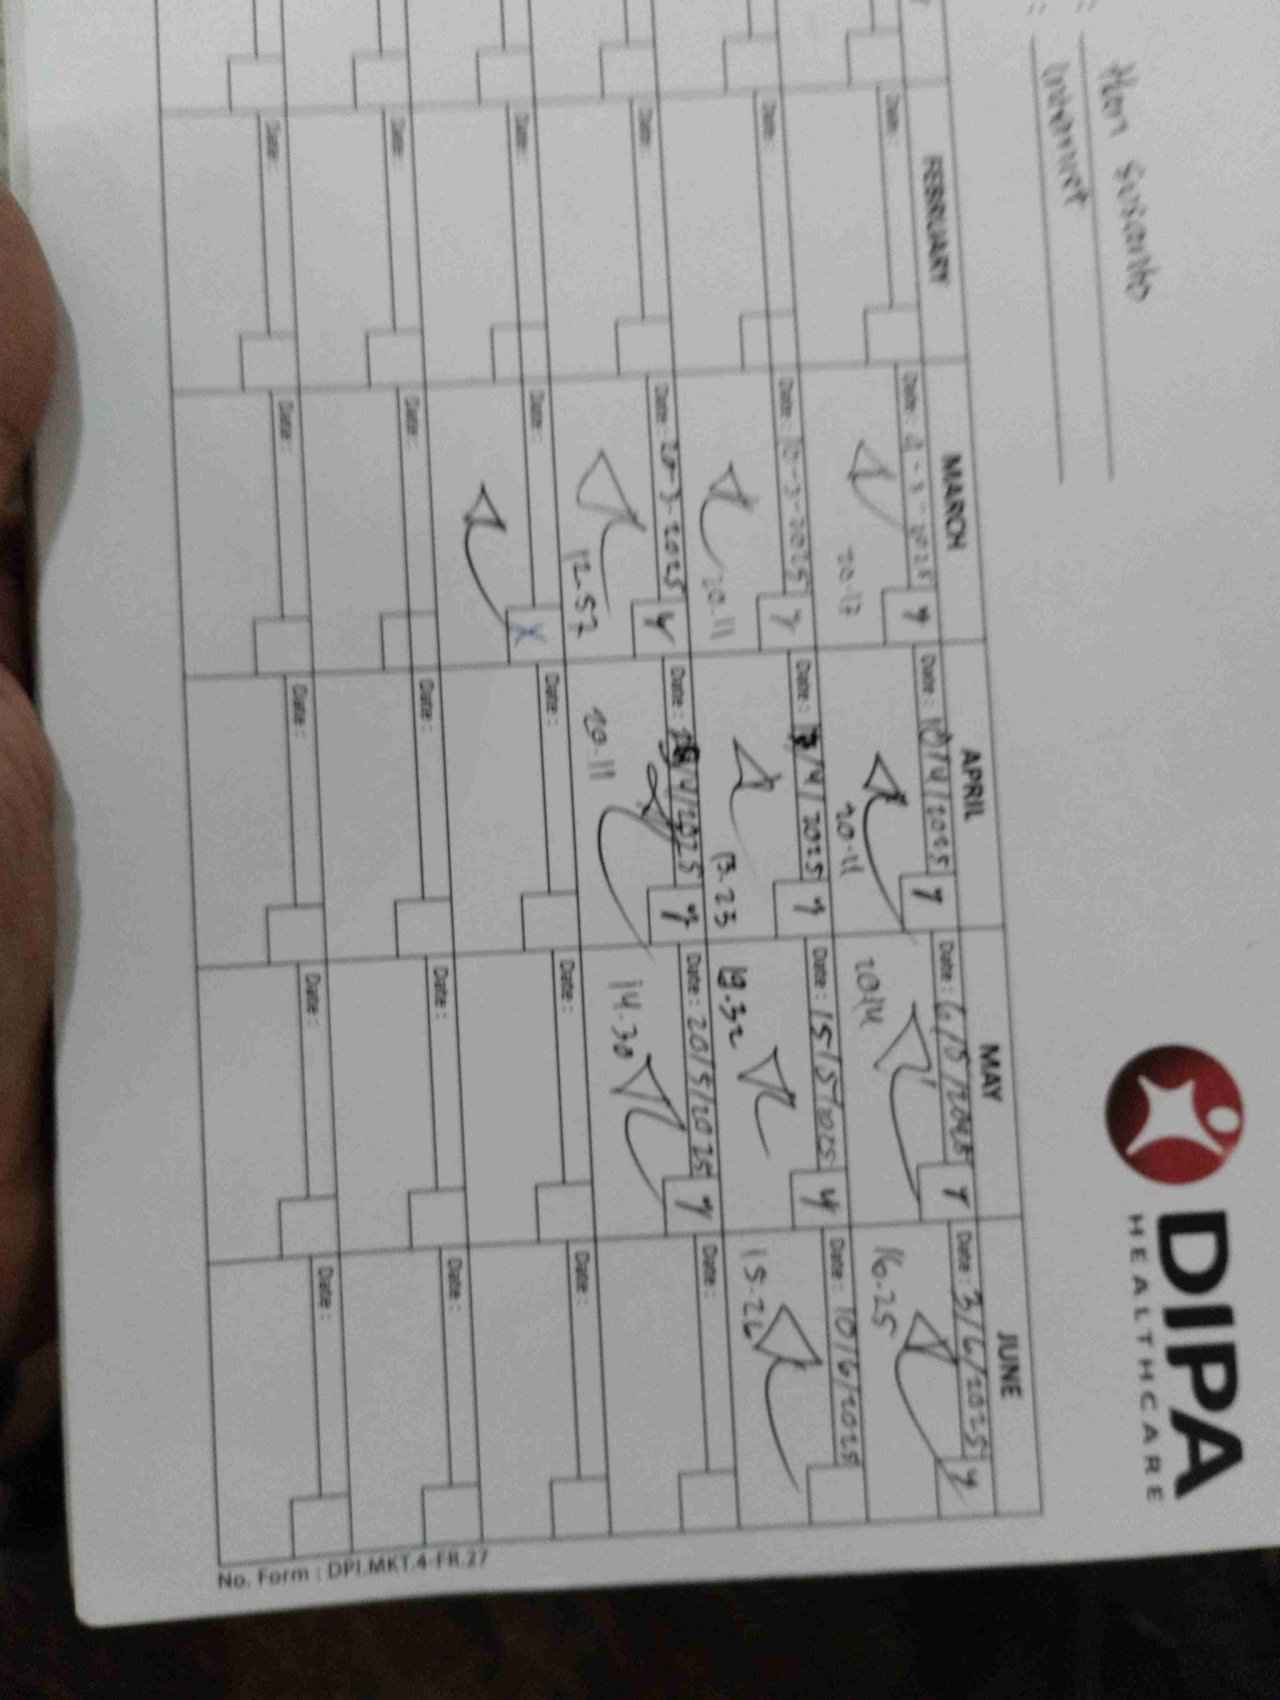 DIPA
HEALTHCARE
: Heri Susanto
: Internist
FEBRUARY MARCH APRIL MAY JUNE
Date: Date: 4-3-2025 Y Date: 10/4/2025 Y Date: 6/5/2025 Y Date: 3/6/2025 Y
20.17 20.11 20.14 16.25
Date: Date: 10-3-2025 Y Date: /4/2025 Y Date: 15/5/2025 Y Date: 10/6/2025
20.11 13.23 19.32 15.26
Date: Date: 20-3-2025 Y Date: /4/2025 Y Date: 20/5/2025 Y Date:
12.57 20.11 14.30
Date: Date: X Date: Date: Date:
Date: Date: Date: Date: Date:
Date: Date: Date: Date: Date:
No. Form : DPI.MKT.4-FR.27